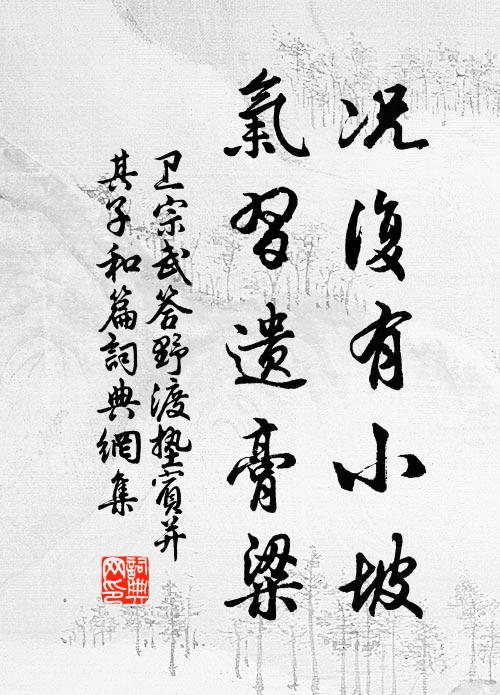 况復有小坡
氣習遗膏粱
卫宗武答野渡塾賓并
其子和篇詞典網集
詞典网印